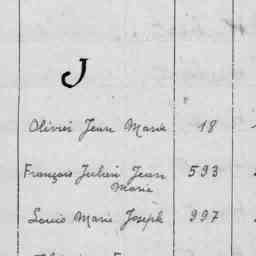 J
Olivier Jean Marie 18
François Julien Jean 593
Marie
Louis Marie Joseph 997